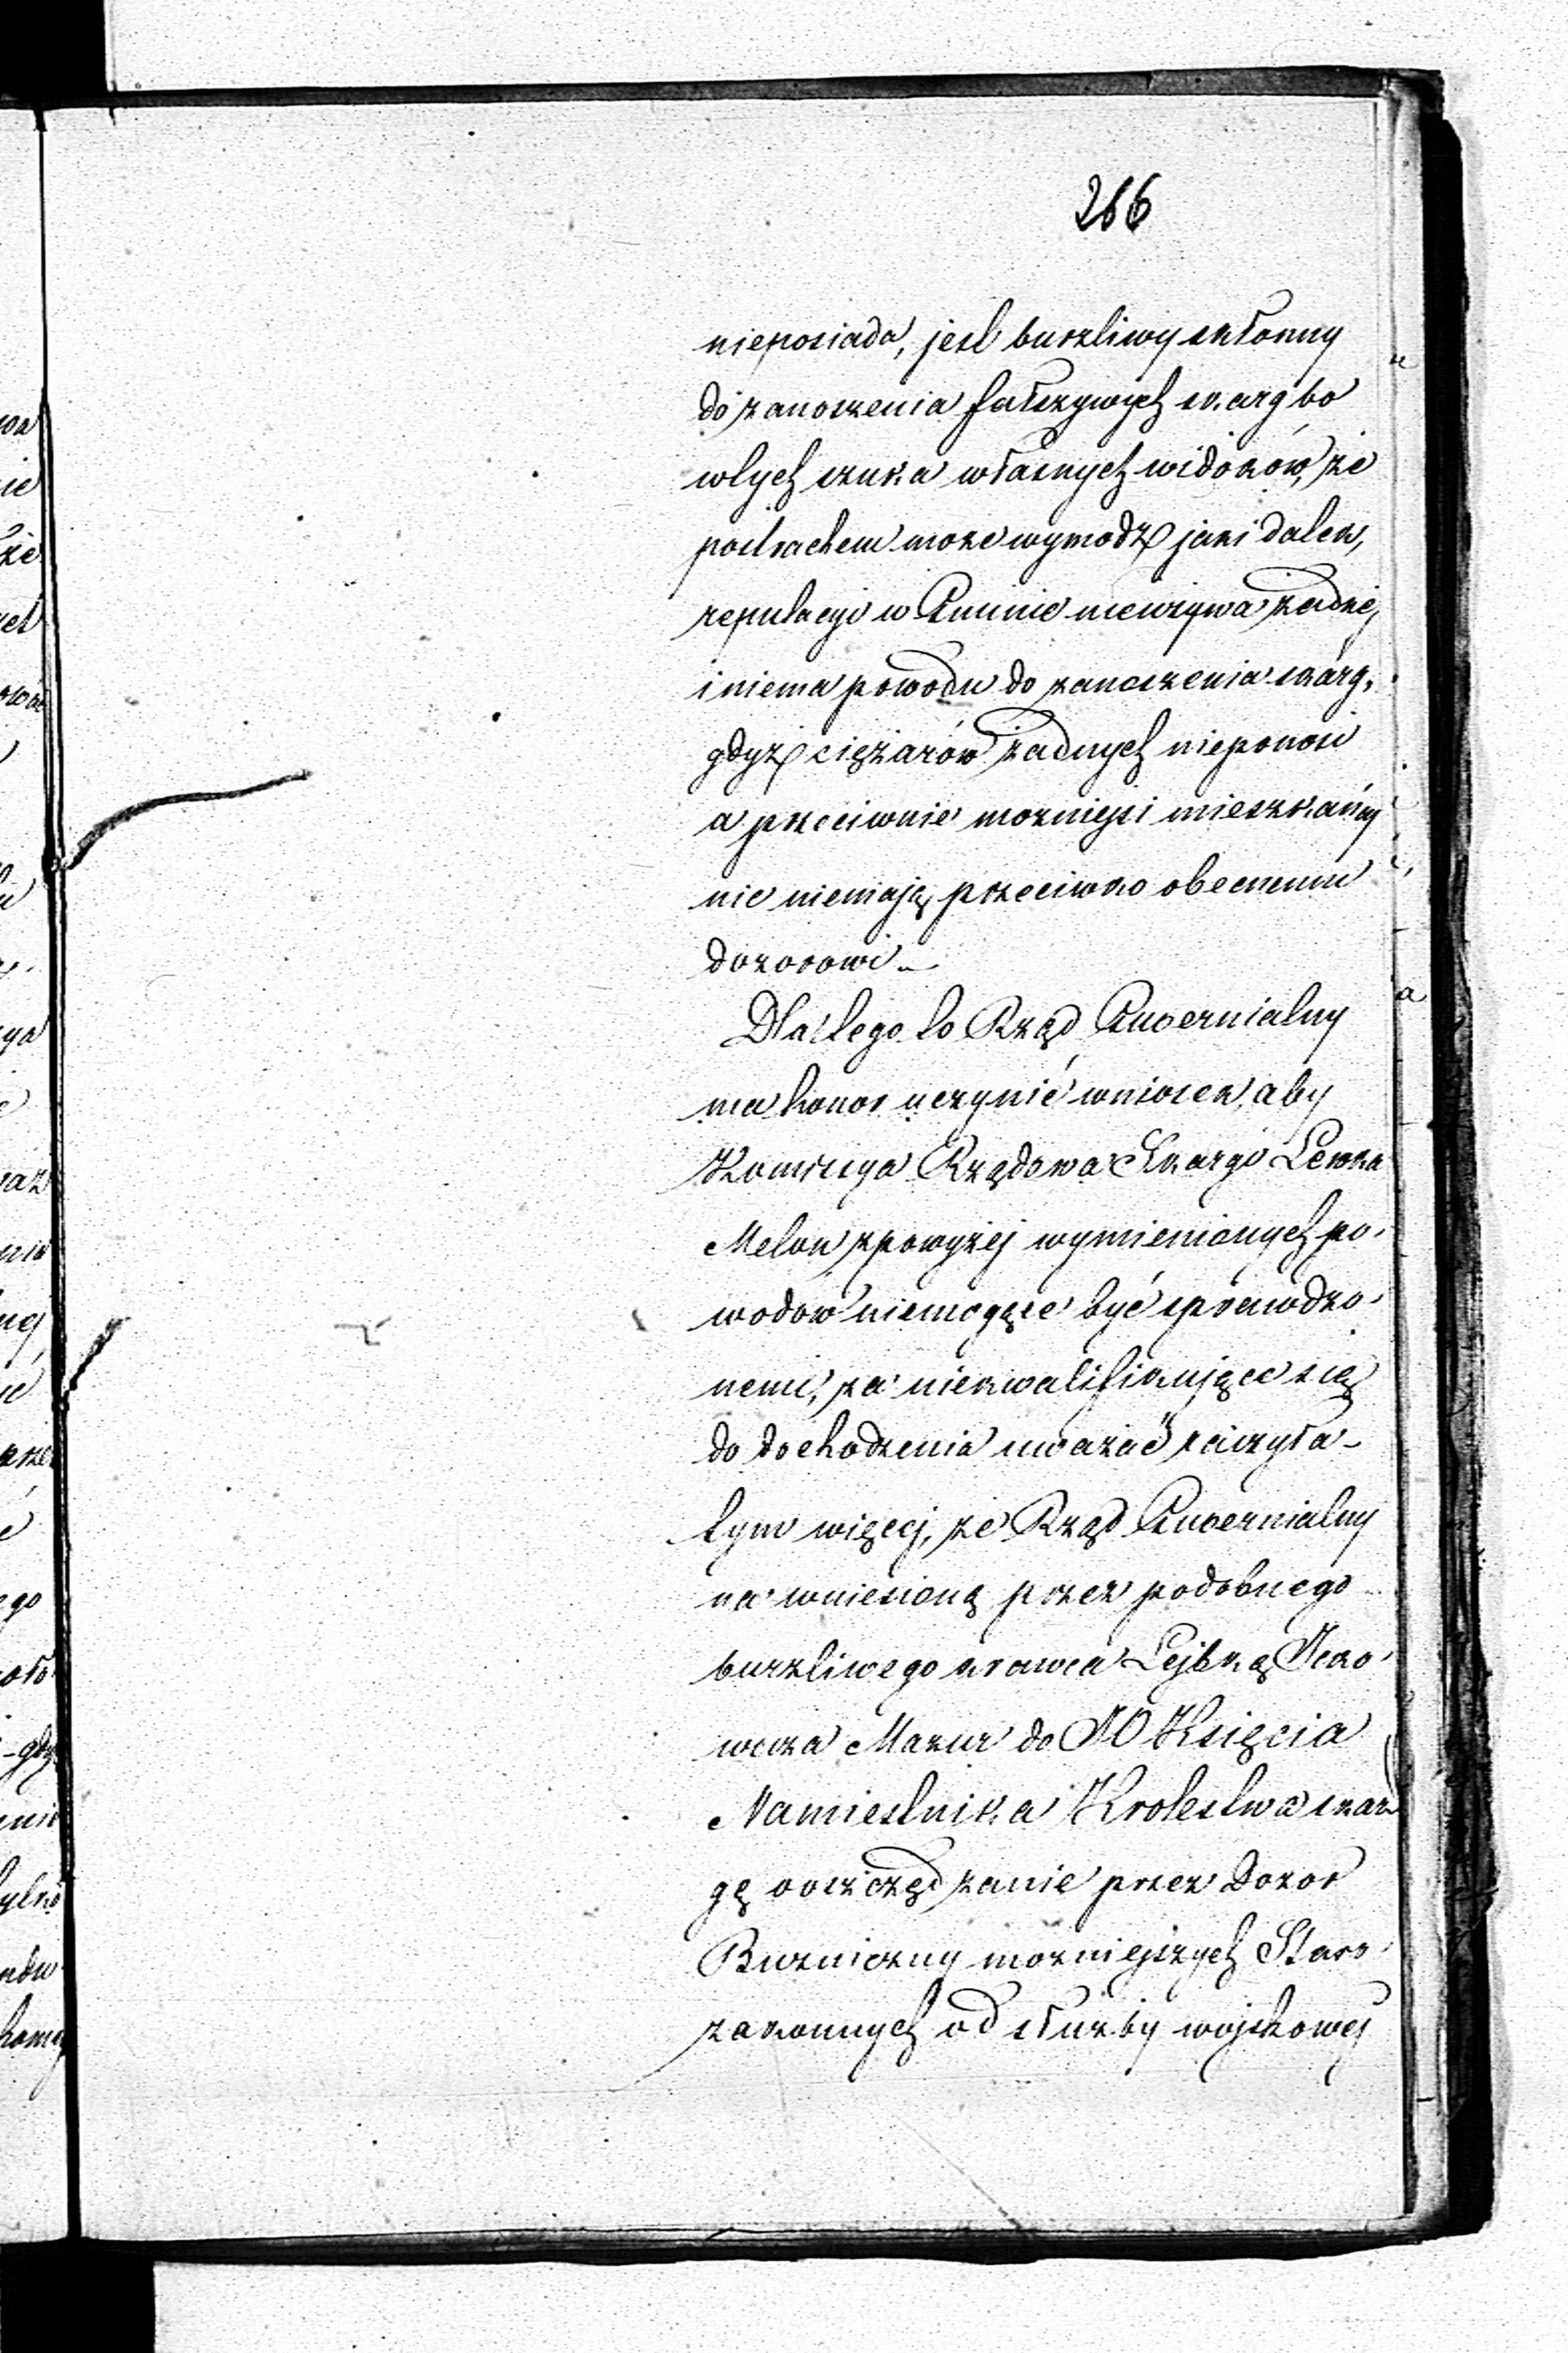 266
nieposiada, jest burzliwy skłonny
do zanoszenia fałszywych skarg bo
wtych szuka własnych widoków, że
postrachem może wymodz jaki datek,
reputacyi w Gminie nieużywa żadnej
i niema powodu do zanoszenia skarg,
gdyż ciężarów żadnych nieponosi
a przeciwnie możniejsi mieszkańcy
nic niemają przeciwko obecnemu
dozorowi –
Dla tego to Rząd Gubernialny
ma honor uczynić wniosek, aby
Kommissya Rządowa Skargi Lewka
Melon z powyżej wymienionych po-
wodow niemogące być sprawdzo-
nemi, za niekwalifikujące się
do dochodzenia uważać raczyła –
tym więcej, że Rząd Gubernialny
na wniesioną przez podobnego
burzliwego krawca Lejbkę Icko-
wicza Mazur do JO Księcia
Namiestnika Krolestwa skar-
gę o oszczędzanie przez Dozor
Bużniczny możniejszych Staro-
zakonnych od służby wojskowej